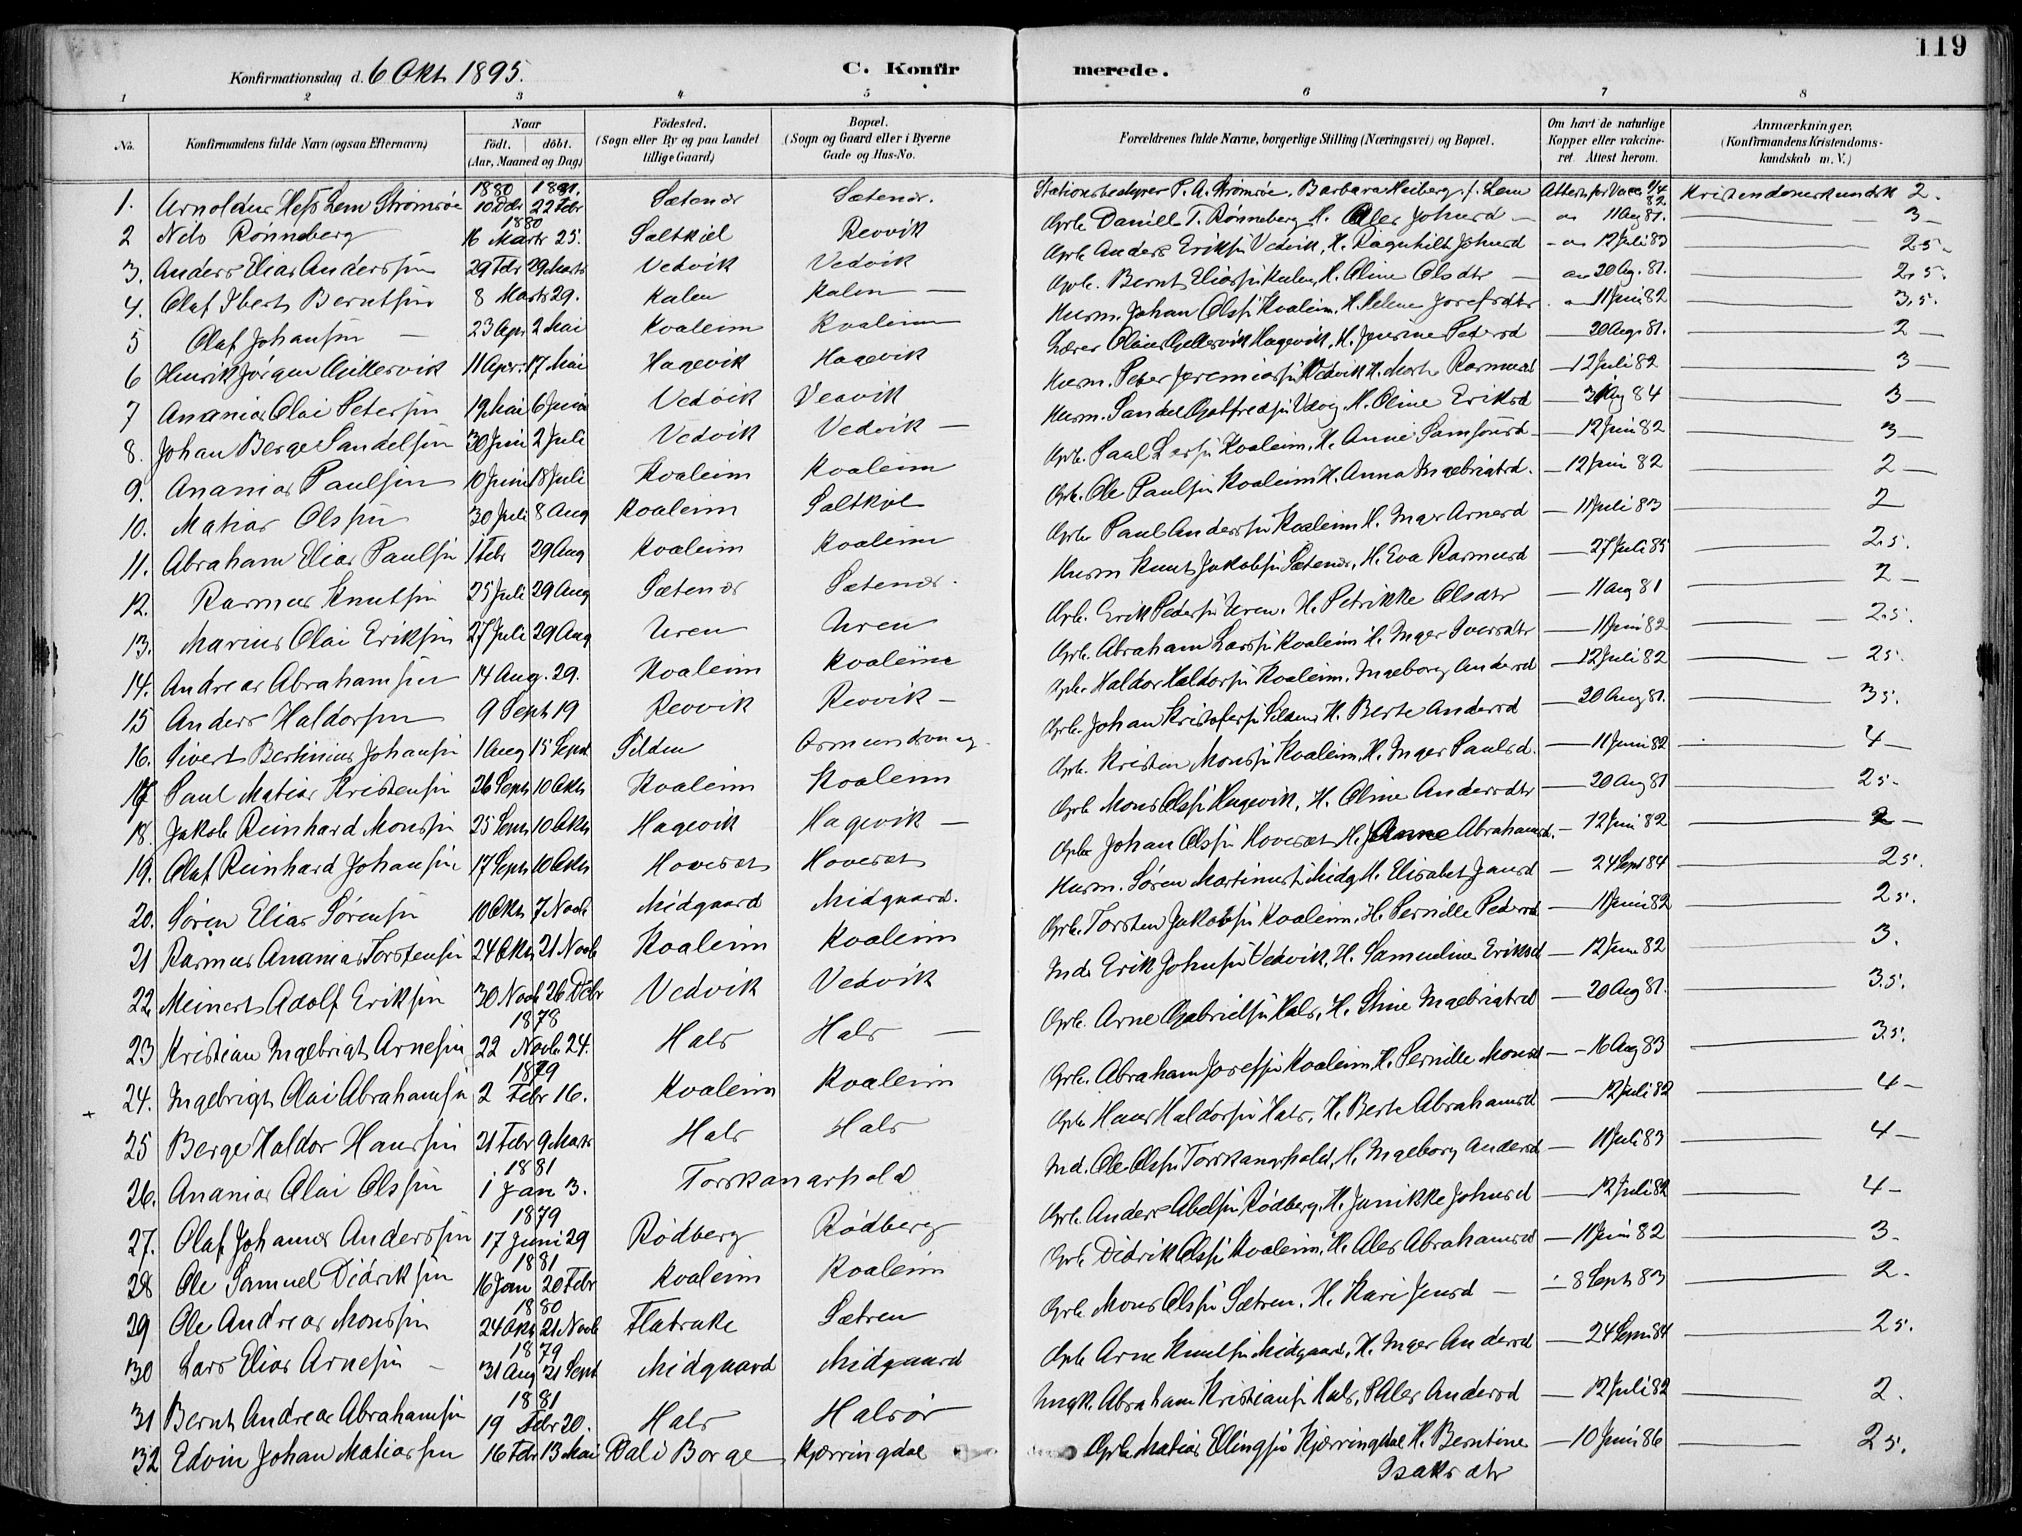 119
Konfirmationsdag d. 6 Okt 1895. C. Konfirmerede.
1 2 3 4 5 6 7 8
No. Konfirmandens fulde Navn (ogsaa Efternavn) Naar født. døbt. (Aar, Maaned og Dag) Fødested. (Sogn eller By og paa Landet tillige Gaard) Bopæl. (Sogn og Gaard eller i Byerne Gade og Hus-No. Forældrenes fulde Navne, borgerlige Stilling (Næringsvei) og Bopæl. Om havt de naturlige Kopper eller vakcineret. Attest herom. Anmærkninger. (Konfirmandens Kristendomskundskab m. V.)
1. Arnoldus Hess Lem Strømsøe 1880 10 Debr 1881. 22 Febr Sætenes Sætenes. Stationsbestyrer P. A. Strømsøe, Barbara Heiberg f. Lem Attest for Vacc. 1/4 82 Kristendomskundsk 2.
2 Nils Rønneberg 1880 16 Marts 25. Saltkjel Revvik Grb. Daniel T. Rønneberg H. Johnsd 11 Aug 81. 3
3. Anders Elias Anderssøn 29 Febr 29 Marts Vedvik Vedvik Grb. Anders Erikssøn Vedvik, H. Ragnhild Johnsd 12 Juli 83 2.5
4. Olaf Ibert Berntssøn 8 Marts 29. Kalen Kalen Grb. Bernt Eliassøn Kalen, H. Oline Olsdtr 20 Aug. 81. 2.5.
5 Olaf Johanssøn 23 Apr 2 Mai Kvaleim Kvaleim Husm. Johan Olssøn Kvaleim, H. Helene Josefsdtr 11 Juni 82 3.5.
6 Henrik Jørgen Gjettervik 11 Apr. 17 Mai Hagevik Hagevik Lærer Olaus Gjettervik Hagevik, H. Jensine Pedersd 20 Aug. 81. 2
7 Ananias Olai Peterssøn 19 Mai 6 Juni Vedvik Vedvik Husm. Peter Jeremiassøn Vedvik H. Marte Rasmusd 12 Juli 82 3
8. Johan Berge Sandelssøn 30 Juni 2 Juli Vedvik Vedvik Husm. Sandel Gotfredsøn Vedvig H. Oline Eriksd 84 3
9. Ananias Paulssøn 10 Juni 18 Juli Kvaleim Kvaleim Grb. Paul Larssøn Kvaleim, H. Anne Samsonsd 12 Juni 82 3
10. Matias Olssøn 30 Juli 8 Aug Kvaleim Saltkjel Grb. Ole Paulssøn Kvaleim H. Anna Ingebrigtsd. 12 Juni 82 2
11. Abraham Elias Paulssøn 1 Febr 29 Aug Kvaleim Kvaleim Grb. Paul Anderssøn Kvaleim H. Inger Arnesd 11 Juli 83 2
12. Rasmus Knutssøn 25 Juli 29 Aug Sætenes Sætenes. Husm Knut Jakobssøn Sætenes, H. Eva Rasmusd 27 Juli 85 2.5.
13. Marius Olai Erikssøn 27 Juli 29 Aug Uren Uren Grb. Erik Pederssøn Uren. H. Petrikke Olsdtr 11 Aug 81 2
14. Andreas Abrahamssøn 14 Aug. 29. Kvaleim Kvaleim Grb. Abraham Larssøn Kvaleim H. Inger Iversdtr 11 Juni 82 2.5.
15 Anders Haldorssøn 9 Sept 19 Revvik Revvik Grb. Haldor Haldorssøn Kvaleim, Ingeborg Andersd 12 Juli 82 25.
16. Sivert Bertinius Johanssøn 1 Aug 15 Sept Silden Osmundsvaag. Grb. Johan Kristofersøn Silden, H. Berte Andersd 20 Aug 81. 35.
17 Paul Matias Kristenssøn 26 Sept 10 Okt Kvaleim Kvaleim Grb. Kristen Monssøn Kvaleim, H. Inger Paulsd. 11 Juni 82 4
18. Jakob Reinhard Monssøn 25 Sept 10 Okt Hagevik Hagevik Grb Mons Olssøn Hagevik, H. Oline Andersdtr 20 Aug 81 25
19. Olaf Reinhard Johanssøn 17 Sept 10 Okt Hoveset Hoveset Grb Johan Olssøn Hoveset H. Anne Abrahamsd. 12 Juni 82 2
20. Søren Elias Sørenssøn 10 Okt 7 Novb Midgaard Midgaard. Husm. Søren Martinussøn Midg. H. Elisabet Jansd 24 Sept 84 25.
21 Rasmus Ananias Torstenssøn 24 Okt 21 Novb Kvaleim Kvaleim Grb. Torsten Jakobssøn Kvaleim, H. Pernille Pedersd 11 Juni 82 25.
22 Meinert Adolf Erikssøn 30 Novb 26 Debr Vedvik Vedvik Ind. Erik Johnssøn Vedvik, H. Samueline Eriksd 12 Juni 82 3.
23 Kristian Ingebrigt Arnessøn 1878 22 Novb 24. Hals Hals Grb. Arne Gabrielssøn Hals, H. Stine Ingebrigtsd 20 Aug 81. 3.5.
24. Ingebrigt Olai Abrahamssøn 1879 2 Febr 16. Kvaleim Kvaleim Grb. Abraham Josefssøn Kvaleim H. Pernille Monsd 16 Aug 83 35.
25 Berge Haldor Hanssøn 21 Febr 9 Marts Hals Hals Grb Hans Haldorssøn Hals, H. Berte Abrahamsd 12 Juli 82 4
26. Ananias Olai Olssøn 1881 1 Jan 3. Torskangerhold Ind. Ole Olssøn Torskangerhold, H. Ingeborg Andersd 11 Juli 83 4
27. Olaf Johannes Anderssøn 1879 17 Juni 29 Rødberg Rødberg Grb. Anders Abelssøn Rødberg, H. Janikke Johnsd 12 Juli 82 4
28 Ole Samuel Didrikssøn 1881 16 Jan 20 Febr Kvaleim Kvaleim Grb. Didrik Olssøn Kvaleim, H. Ales Abrahamsd 11 Juni 82 3.
29 Ole Andreas Monssøn 1880 24 Okt 21 Novb Flatrake Sætren Grb. Mons Olssøn Sætren, H. Kari Jensd 8 Sept 83 2.
30 Lars Elias Arnessøn 1879 31 Aug 21 Sept Midgaard Midgaard Grb Arne Knutssøn Midgaard, H. Inger Andersd 24 Sept 84 25.
31 Bernt Andreas Abrahamssøn 1881 19 Febr 20. Hals Halsør Ungk. Abraham Kristianssøn Hals, P. Ales Andersd 12 Juli 82 2.
32 Edvin Johan Matiassøn 16 Febr 13 Mai Dal i Borge Kjerringdal Grb Matias Ellingssøn Kjerringdal H. Berntine Isaksdtr 10 Juni 86 25.